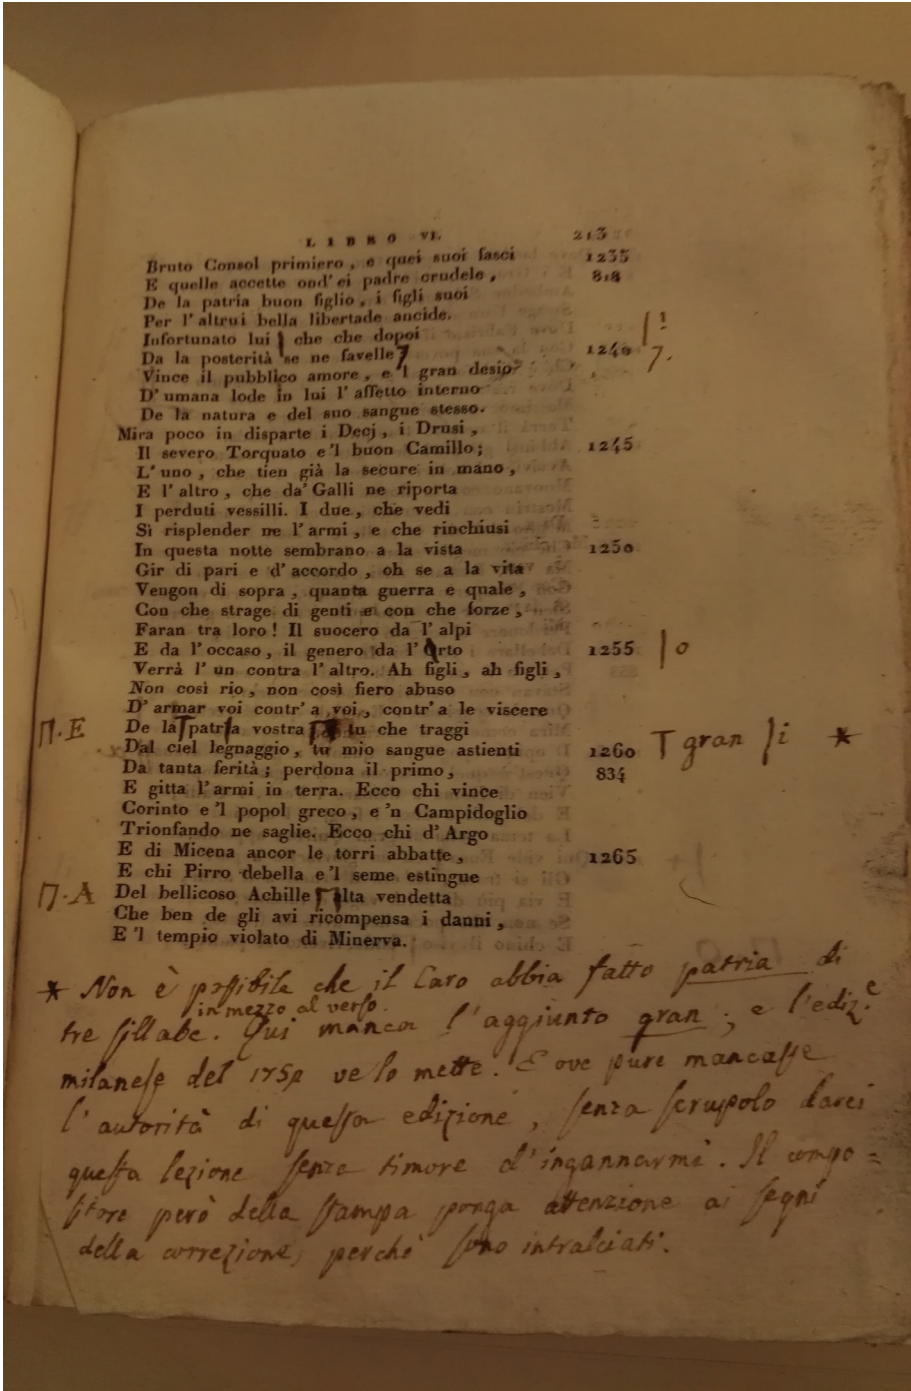 LIBRO VI. 213
Bruto Consol primiero, e quei suoi fasci 1235
E quelle accette ond' ei padre crudele, 818
De la patria buon figlio, i figli suoi
Per l'altrui bella libertade ancide.
Infortunato lui che che dopoi |!
Da la posterità se ne favelle 1240 7.
Vince il pubblico amore, e 'l gran desio
D' umana lode in lui l' affetto interno
De la natura e del suo sangue stesso.
Mira poco in disparte i Decj, i Drusi,
Il severo Torquato e 'l buon Camillo; 1245
L' uno, che tien già la secure in mano,
E l' altro, che da' Galli ne riporta
I perduti vessilli. I due, che vedi
Sì risplender ne l' armi, e che rinchiusi
In questa notte sembrano a la vista 1250
Gir di pari e d' accordo, oh se a la vita
Vengon di sopra, quanta guerra e quale,
Con che strage di genti e con che forze,
Faran tra loro! Il suocero da l' alpi
E da l' occaso, il genero da l' Orto 1255 | o
Verrà l' un contra l' altro. Ah figli, ah figli,
Non così rio, non così fiero abuso
D' armar voi contr' a voi, contr' a le viscere
Π.E De la patria vostra tu che traggi
Dal ciel legnaggio, tu mio sangue astienti 1260 T gran /i *
Da tanta ferità; perdona il primo, 834
E gitta l' armi in terra. Ecco chi vince
Corinto e 'l popol greco, e 'n Campidoglio
Trionfando ne saglie. Ecco chi d' Argo
E di Micena ancor le torri abbatte, 1265
E chi Pirro debella e 'l seme estingue
Π.A Del bellicoso Achille alta vendetta
Che ben de gli avi ricompensa i danni,
E 'l tempio violato di Minerva.
* Non è possibile che il Caro abbia fatto patria di
in mezzo al verso.
tre sillabe. Qui manca l'aggiunto gran; e l'ediz.e
milanese del ve lo mette. E ove pure mancasse
l'autorità di questa edizione, senza scrupolo darei
questa lezione senza timore d'ingannarmi. Il compo=
sitore però della stampa ponga attenzione ai segni
della correzione, perchè sono intralciati.